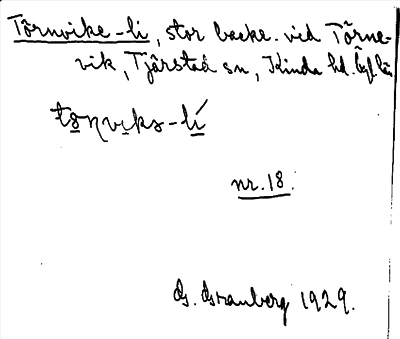 Törnvike-li, stor backe. vid Törne-
vik, Tjärstad sn, Kinda hd. Ögl. län
tɷ̲ɳvi̲ks-lí̲
nr. 18.
G. Granberg 1929.